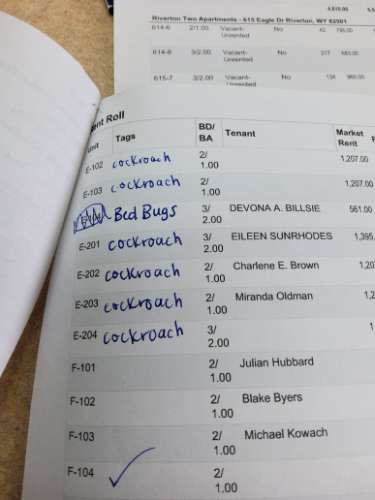 4,815.00
Riverton Two Apartments - 615 Eagle Dr Riverton, WY 82501
614-6 2/1.00 Vacant-Unrented No 42 795.00
614-8 3/2.00 Vacant-Unrented No
615-7 3/2.00 Vacant-Unrented No 134
ent Roll
Unit Tags BD/BA Tenant Market Rent
E-102 cockroach 2/1.00 1,207.00
E-103 cockroach 2/1.00 1,207.00
Bed Bugs 3/2.00 DEVONA A. BILLSIE 561.00
E-201 cockroach 3/2.00 EILEEN SUNRHODES 1,395.
E-202 cockroach 2/1.00 Charlene E. Brown 1,20
E-203 cockroach 2/1.00 Miranda Oldman 1,2
E-204 cockroach 3/2.00
F-101 2/1.00 Julian Hubbard
F-102 2/1.00 Blake Byers
F-103 2/1.00 Michael Kowach
F-104 2/1.00